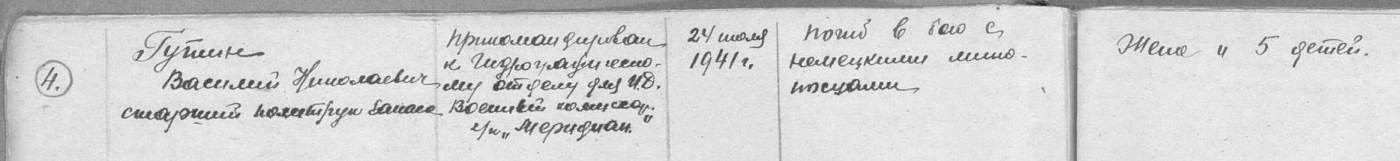 4.
Гутин
Василий Николаевич
старший политрук запаса
Прикомандирован
к Гидрографическо-
му отделу для И.Д.
Военный комиссар.
г/с „Меридиан"
24 июля
1941 г.
Погиб в бою с
немецкими мино-
носцами
Жена и 5 детей.